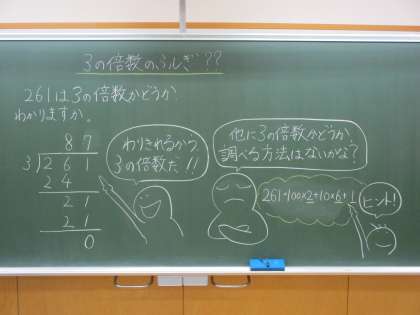 3の倍数のふしぎ??
261は3の倍数かどうか
わかりますか。
87
3)261
24
21
21
0
わりきれるから
3の倍数だ!!
他に3の倍数かどうか
調べる方法はないかな?
261=100×2+10×6+1
ヒント!